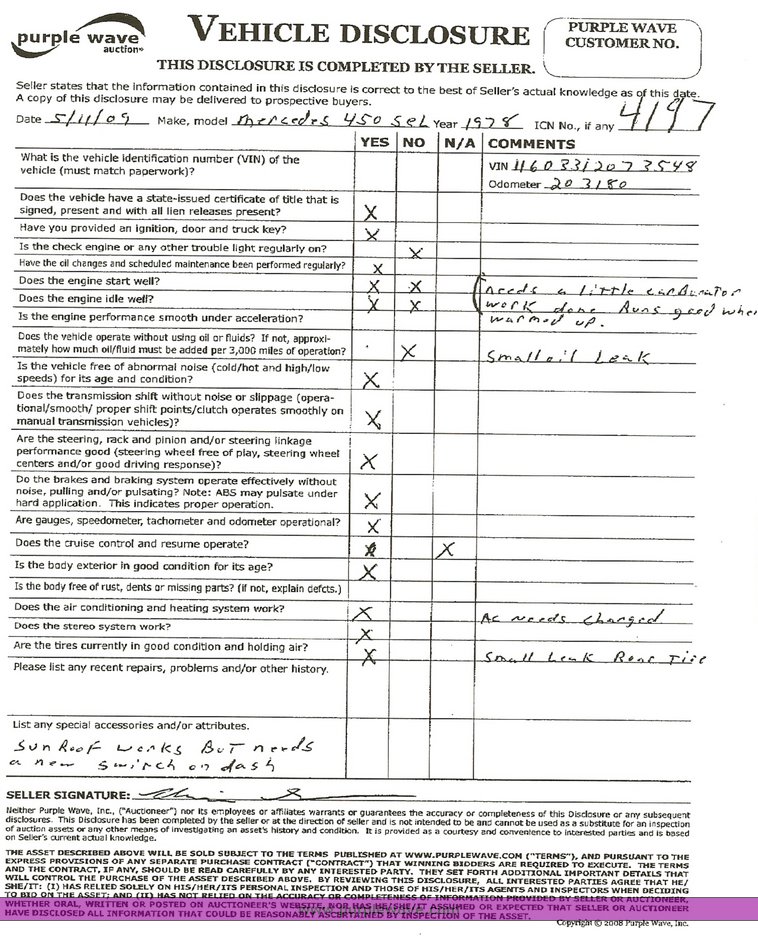 purple wave
auction®
VEHICLE DISCLOSURE
PURPLE WAVE
CUSTOMER NO.
THIS DISCLOSURE IS COMPLETED BY THE SELLER.
Seller states that the information contained in this disclosure is correct to the best of Seller's actual knowledge as of this date.
A copy of this disclosure may be delivered to prospective buyers.
4197
Date 5/11/09 Make, model Mercedes 450 SEL Year 1978 ICN No., if any
YES NO N/A COMMENTS
What is the vehicle identification number (VIN) of the
vehicle (must match paperwork)?
VIN 11603312073548
Odometer 203180
Does the vehicle have a state-issued certificate of title that is
signed, present and with all lien releases present? X
Have you provided an ignition, door and truck key? X
Is the check engine or any other trouble light regularly on? X
Have the oil changes and scheduled maintenance been performed regularly? X
Does the engine start well? X X needs a little carburator
Does the engine idle well? X X work done Runs good when
Is the engine performance smooth under acceleration? warmed up.
Does the vehicle operate without using oil or fluids? If not, approxi-
mately how much oil/fluid must be added per 3,000 miles of operation? X Small oil Leak
Is the vehicle free of abnormal noise (cold/hot and high/low
speeds) for its age and condition? X
Does the transmission shift without noise or slippage (opera-
tional/smooth/ proper shift points/clutch operates smoothly on
manual transmission vehicles)? X
Are the steering, rack and pinion and/or steering linkage
performance good (steering wheel free of play, steering wheel
centers and/or good driving response)? X
Do the brakes and braking system operate effectively without
noise, pulling and/or pulsating? Note: ABS may pulsate under
hard application. This indicates proper operation. X
Are gauges, speedometer, tachometer and odometer operational? X
Does the cruise control and resume operate? X X
Is the body exterior in good condition for its age? X
Is the body free of rust, dents or missing parts? (if not, explain defcts.)
Does the air conditioning and heating system work? X AC needs Charged
Does the stereo system work? X
Are the tires currently in good condition and holding air? X Small Leak Rear Tire
Please list any recent repairs, problems and/or other history.
List any special accessories and/or attributes.
SunRoof works But needs
a new switch on dash
SELLER SIGNATURE:
Neither Purple Wave, Inc., ("Auctioneer") nor its employees or affiliates warrants or guarantees the accuracy or completeness of this Disclosure or any subsequent
disclosures. This Disclosure has been completed by the seller or at the direction of seller and is not intended to be and cannot be used as a substitute for an inspection
of auction assets or any other means of investigating an asset's history and condition. It is provided as a courtesy and convenience to interested parties and is based
on Seller's current actual knowledge.
THE ASSET DESCRIBED ABOVE WILL BE SOLD SUBJECT TO THE TERMS PUBLISHED AT WWW.PURPLEWAVE.COM ("TERMS"), AND PURSUANT TO THE
EXPRESS PROVISIONS OF ANY SEPARATE PURCHASE CONTRACT ("CONTRACT") THAT WINNING BIDDERS ARE REQUIRED TO EXECUTE. THE TERMS
AND THE CONTRACT, IF ANY, SHOULD BE READ CAREFULLY BY ANY INTERESTED PARTY. THEY SET FORTH ADDITIONAL IMPORTANT DETAILS THAT
WILL CONTROL THE PURCHASE OF THE ASSET DESCRIBED ABOVE. BY REVIEWING THIS DISCLOSURE, ALL INTERESTED PARTIES AGREE THAT HE/
SHE/IT: (I) HAS RELIED SOLELY ON HIS/HER/ITS PERSONAL INSPECTION AND THOSE OF HIS/HER/ITS AGENTS AND INSPECTORS WHEN DECIDING
TO BID ON THE ASSET; AND (II) HAS NOT RELIED ON THE ACCURACY OR COMPLETENESS OF INFORMATION PROVIDED BY SELLER OR AUCTIONEER,
WHETHER ORAL, WRITTEN OR POSTED ON AUCTIONEER'S WEBSITE, NOR HAS HE/SHE/IT ASSUMED OR EXPECTED THAT SELLER OR AUCTIONEER
HAVE DISCLOSED ALL INFORMATION THAT COULD BE REASONABLY ASCERTAINED BY INSPECTION OF THE ASSET.
Copyright © 2008 Purple Wave, Inc.